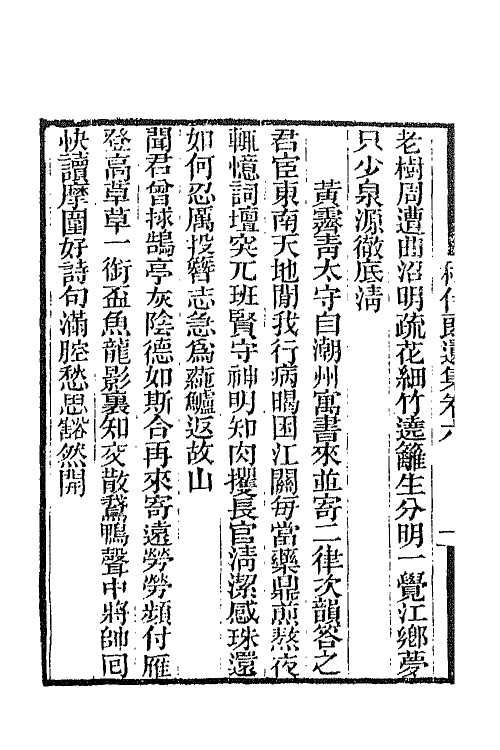 老樹周遭曲沼明疏花細竹遶籬生分明一覺江鄉夢
只少泉源徹底淸
黃霽靑太守自潮州寓書來並寄二律次韻答之
君宦東南天地閒我行病暍困江關每當藥鼎煎熬夜
輒憶詞壇突兀班賢守神明知肉攫長官淸潔感珠還
如何忍厲投簪志急爲蒓鱸返故山
聞君曾捄鵠亭灰陰德如斯合再來寄遠勞勞頻付雁
登高草草一銜盃魚龍影裏知交散鵞鴨聲中將帥回
快讀摩圍好詩句滿腔愁思豁然開
遺集卷六
一